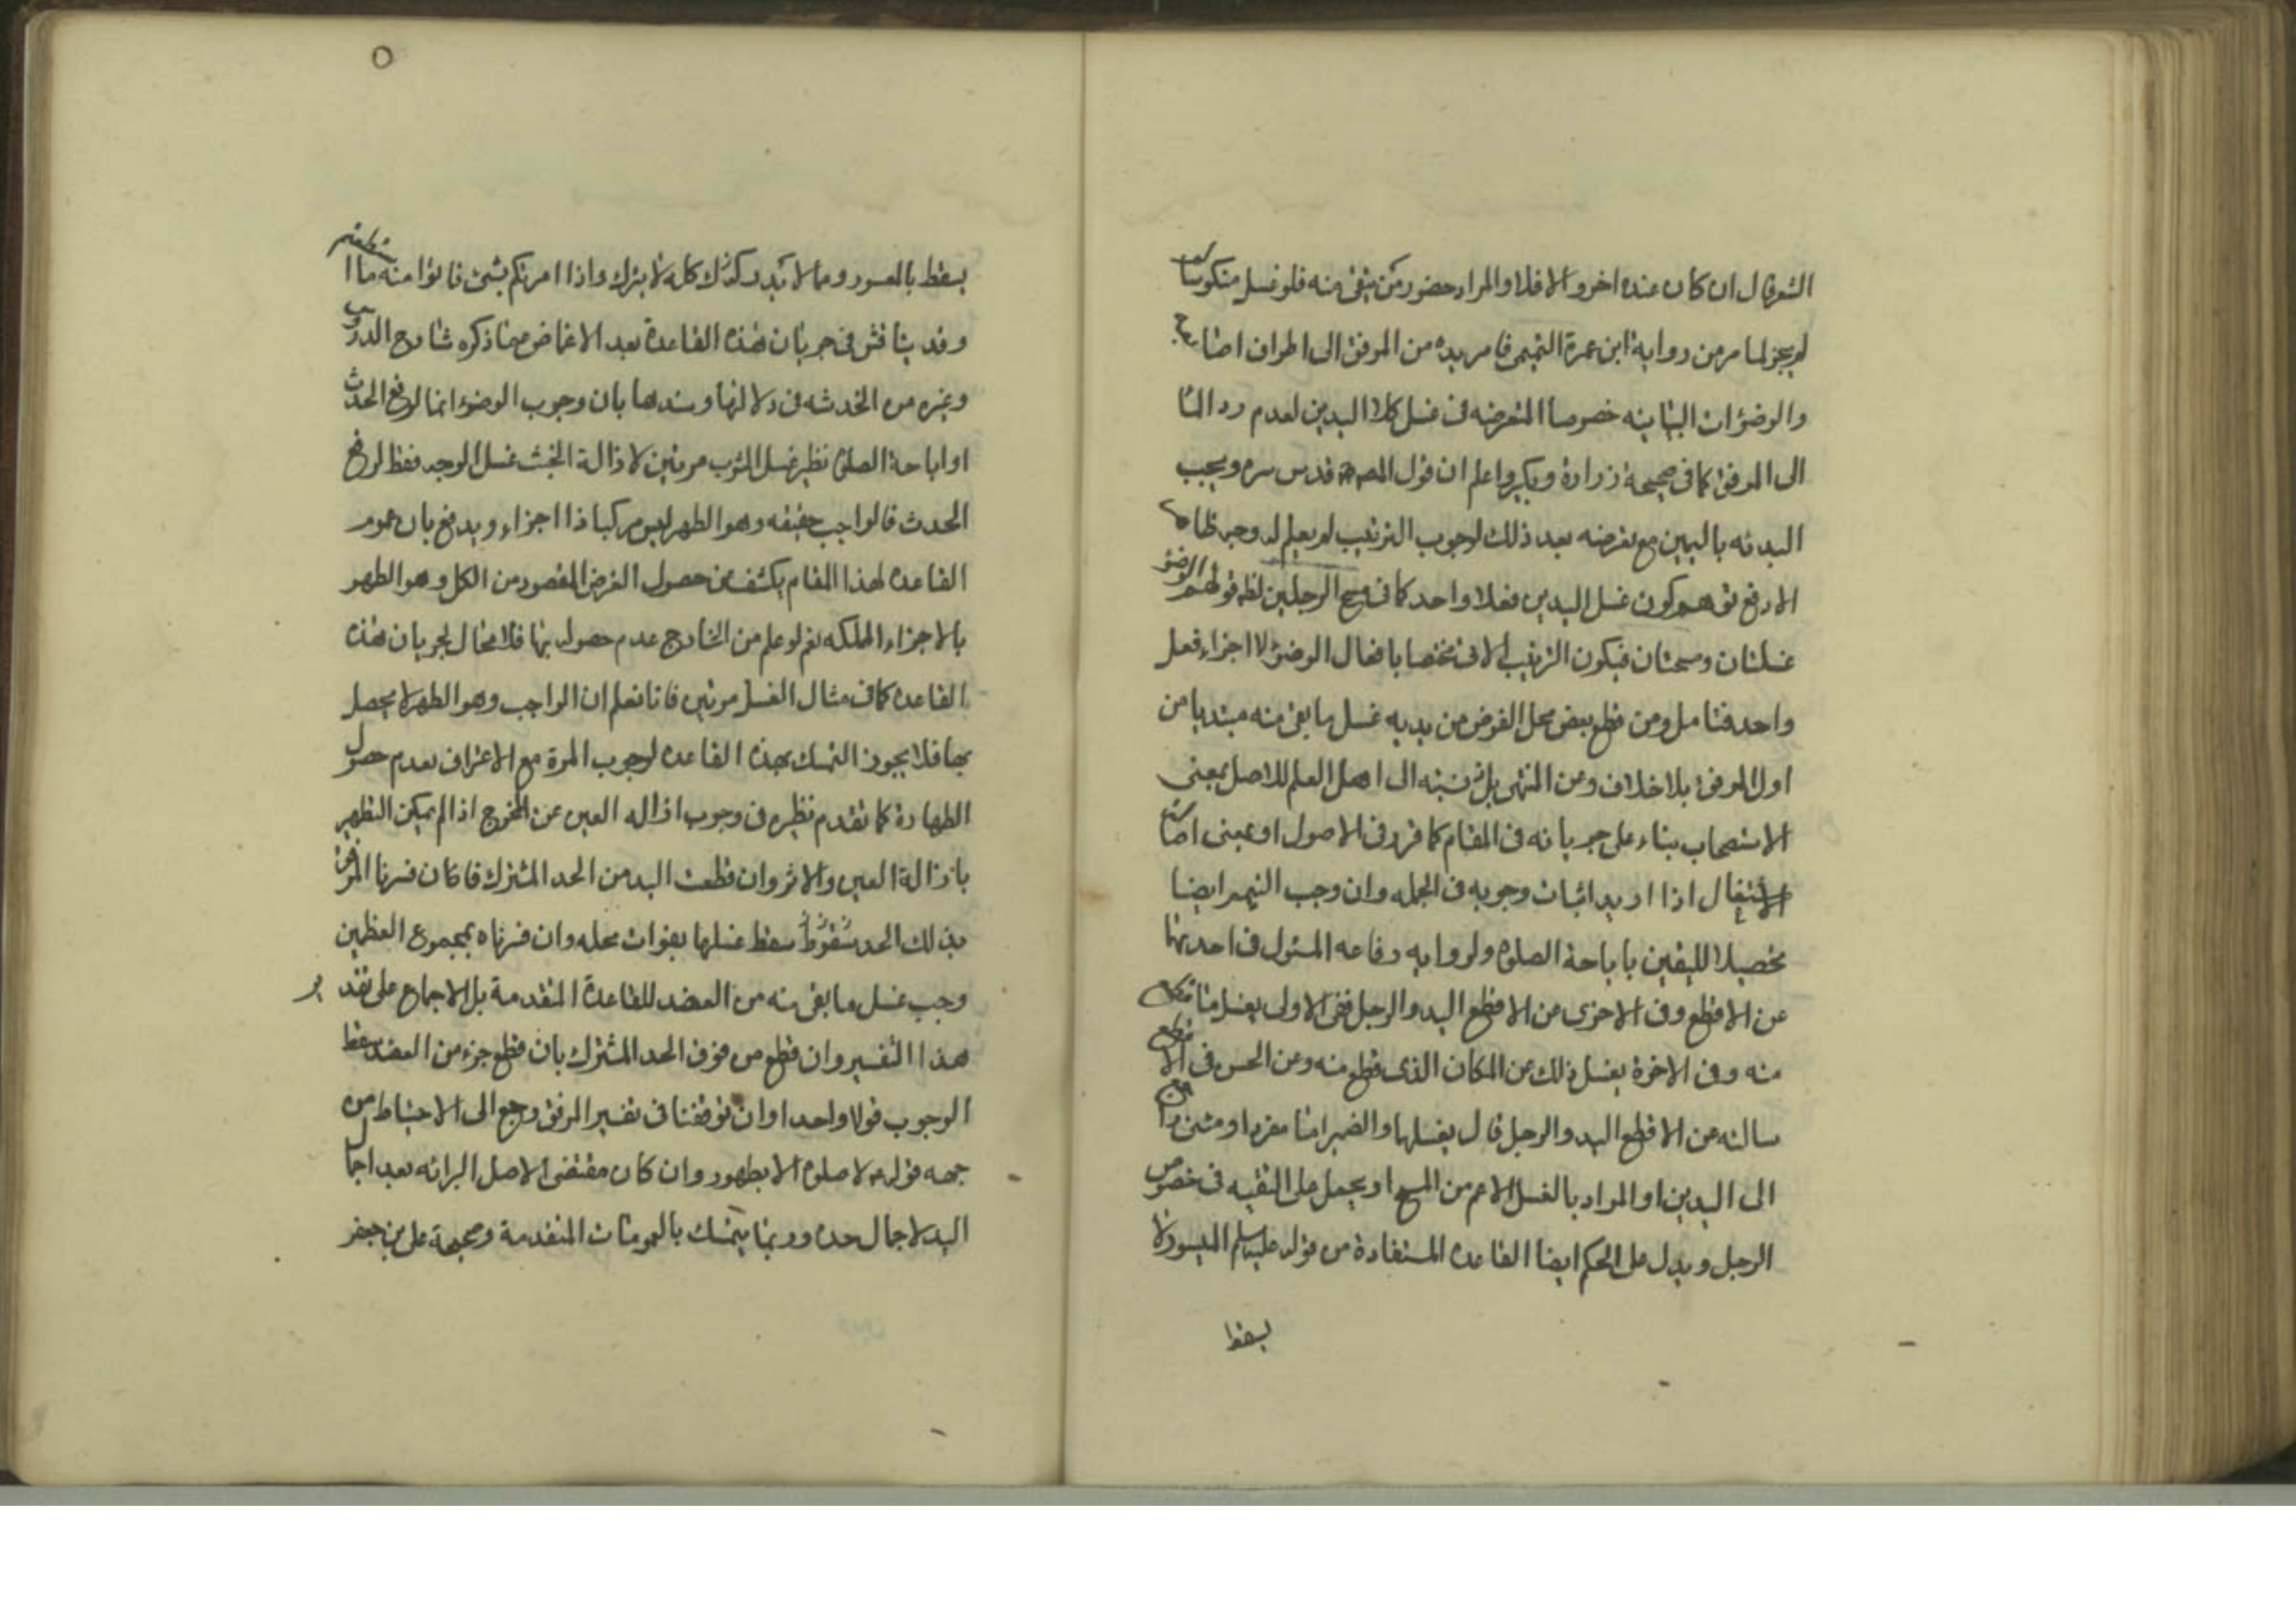 الشعر قال ان كان عنده اخر والا فلا والمراد حضور من يتقى منه فلو غسل منكوسا
لم يجز لما مر من رواية ابن عروة التميمي فامر يده من المرفق الى اطراف اصابعه
والوضوءات البيانيه خصوصا المتعرضه فى غسل كلا اليدين لعدم رد الماء
الى المرفق كما فى صحيحة زرارة وبكير واعلم ان قول المصنف قدس سره ويجب
البدئه باليمين مع تعرضه بعد ذلك لوجوب الترتيب لم يعلم له وجه ظاهر
الا دفع توهم كون غسل اليدين فعلا واحدا كما فى مسح الرجلين لظ قولهم الوضوء
غسلتان ومسحتان فيكون الترتيب الاتى مختصا بافعال الوضوء لا اجزاء فعل
واحد فتامل ومن قطع بعض محل الفرض من يديه غسل ما بقى منه مبتديا من
اول المرفق بلا خلاف وعن المنتهى نسبته الى اهل العلم للاصل بمعنى
الاستصحاب بناء على جريانه فى المقام كما قرر فى الاصول او بمعنى اصالة
الاشتغال اذا اريد اثبات وجوبه فى الجمله وان وجب التيمم ايضا
تحصيلا لليقين باباحة الصلوة ولرواية رفاعه المسئول فى احديهما
عن الاقطع وفى الاخرى من الاقطع اليد والرجل ففى الاولى يغسل ما قطع
منه وفى الاخرة يغسل ذلك عن المكان الذى قطع منه وعن الحسن فى الاقطع
سالته عن الاقطع اليد والرجل قال يغسلها والضمير اما مفرد او مثنى راجع
الى اليدين او المراد بالغسل الاعم من المسح او يحمل على التقيه فى خصوص
الرجل ويدل على الحكم ايضا القاعده المستفادة من قوله عليه السلم الميسور لا
يسقط
٥
يسقط بالمعسور وما لا يدرك كله لا يترك واذا امرتكم بشئ فاتوا منه ما استطعتم
وقد يناقش فى جريان هذه القاعدة بعد الاغماض عما ذكره شارح الدروس
وغيره من الخدشه فى دلالتها وسندها بان وجوب الوضوء انما لرفع الحدث
او اباحة الصلوة نظير غسل الثوب مرتين لازالة الخبث غسل الوجه فقط لرفع
الحدث فالواجب حقيقه وهو الطهر ليس مركبا ذا اجزاء ويدفع بان عموم
القاعده لهذا المقام يكشف عن حصول الغرض المقصود من الكل وهو الطهر
بالاجزاء الممكنه نعم لو علم من الخارج عدم حصوله بها فلا مجال لجريان هذه
القاعده كما فى مثال الغسل مرتين فانا نعلم ان الواجب وهو الطهر لا يحصل
بها فلا يجوز التمسك بهذه القاعده لوجوب المرة مع الاعتراف بعدم حصول
الطهارة كما تقدم نظيره فى وجوب ازاله العين عن المخرج اذا لم يمكن التطهير
بازالة العين والاثر وان قطعت اليد من الحد المشترك فان كان فسرنا المرفق
بذلك الحد سقوط سقط غسلها بفوات محله وان فسرناه بمجموع العظمين
وجب غسل ما بقى منه من العضد للقاعدة المتقدمة بل الاجماع على تقدير
هذا التفسير وان قطع من فوق الحد المشترك بان قطع جزء من العضد سقط
الوجوب قولا واحدا وان توقفنا فى تفسير المرفق وجع الى الاحتياط من
جهه قوله لا صلوة الا بطهور وان كان مقتضى الاصل البرائه بعد اجمال
اليد لاجمال حده وربما يتمسك بالعمومات المتقدمة وصحيحة على بن جعفر